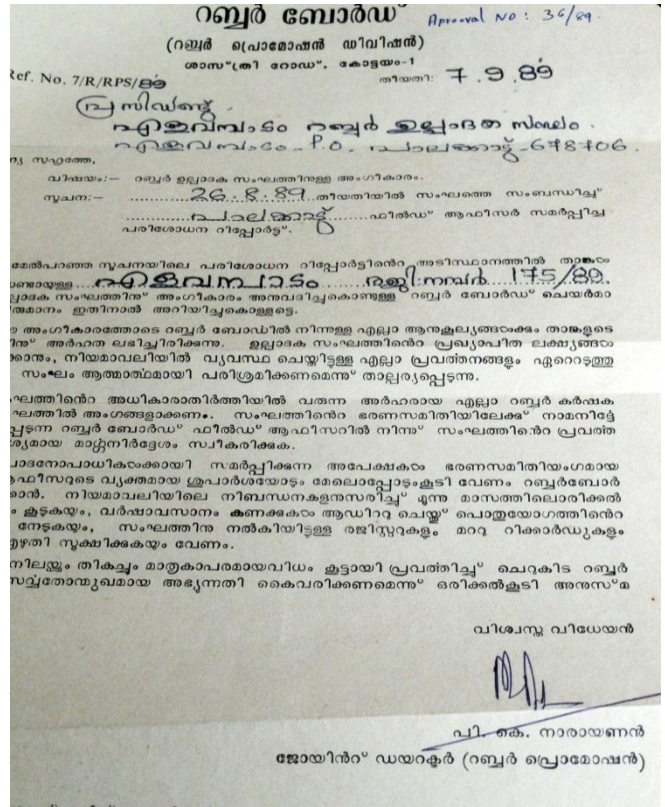 റബ്ബർ ബോർഡ് Approval No: 36/89
(റബ്ബർ പ്രൊമോഷൻ ഡിവിഷൻ)
ശാസ്ത്രി റോഡ്, കോട്ടയം-1
Ref. No. 7/R/RPS/89 തീയതി: 7.9.89
പ്രസിഡണ്ടു്
എളവമ്പാടം റബ്ബർ ഉല്പാദക സംഘം.
എളവമ്പാടം-P.O, പാലക്കാട്ട്-678706.
സഹൃത്തേ,
വിഷയം:— റബ്ബർ ഉല്പാദക സംഘത്തിനുള്ള അംഗീകാരം.
സൂചന:— 26.8.89 തീയതിയിൽ സംഘത്തെ സംബന്ധിച്ച്
പാലക്കാട്ട് ഫീൽഡ് ആഫീസർ സമർപ്പിച്ച
പരിശോധന റിപ്പോർട്ട്.
മേൽപറഞ്ഞ സൂചനയിലെ പരിശോധന റിപ്പോർട്ടിന്റെ അടിസ്ഥാനത്തിൽ
എളവമ്പാടം രജി:നമ്പർ 175/89
സംഘത്തിനു് അംഗീകാരം അനുവദിച്ചുകൊണ്ടുള്ള റബ്ബർ ബോർഡ് ചെയർമാ
ഇതിനാൽ അറിയിച്ചുകൊള്ളട്ടെ.
അംഗീകാരത്തോടെ റബ്ബർ ബോഡിൽ നിന്നുള്ള എല്ലാ ആനുകൂല്യങ്ങൾക്കും താങ്കളുടെ
അർഹത ലഭിച്ചിരിക്കുന്നു. ഉല്പാദക സംഘത്തിന്റെ പ്രഖ്യാപിത ലക്ഷ്യങ്ങൾ
നിയമാവലിയിൽ വ്യവസ്ഥ ചെയ്തിട്ടുള്ള എല്ലാ പ്രവർത്തനങ്ങളും ഏറ്റെടുത്തു
സംഘം ആത്മാർത്ഥമായി പരിശ്രമിക്കണമെന്നു് താല്പര്യപ്പെടുന്നു.
അധികാരാതിർത്തിയിൽ വരുന്ന അർഹരായ എല്ലാ റബ്ബർ കർഷക
അംഗങ്ങളാക്കണം. സംഘത്തിന്റെ ഭരണസമിതിയിലേക്കു് നാമനിർദ്ദേ
റബ്ബർ ബോർഡ് ഫീൽഡ് ആഫീസറിൽ നിന്നു് സംഘത്തിന്റെ പ്രവർത്ത
മാർഗ്ഗനിർദ്ദേശം സ്വീകരിക്കുക.
സമർപ്പിക്കുന്ന അപേക്ഷകൾ ഭരണസമിതിയംഗമായ
വ്യക്തമായ ശുപാർശയോടും മേലൊപ്പോടുംകൂടി വേണം റബ്ബർബോർ
നിയമാവലിയിലെ നിബന്ധനകളനുസരിച്ച് മൂന്നു മാസത്തിലൊരിക്കൽ
കൂടുകയും, വർഷാവസാനം കണക്കുകൾ ആഡിററു ചെയ്തു് പൊതുയോഗത്തിന്റെ
നേടുകയും, സംഘത്തിനു നൽകിയിട്ടുള്ള രജിസ്റ്ററുകളും മററു റിക്കാർഡുകളും
സൂക്ഷിക്കുകയും വേണം.
തികച്ചും മാതൃകാപരമായവിധം കൂട്ടായി പ്രവർത്തിച്ച് ചെറുകിട റബ്ബർ
അഭ്യുന്നതി കൈവരിക്കണമെന്നു് ഒരിക്കൽകൂടി അനുസ്മ
വിശ്വസ്ത വിധേയൻ
പി. കെ. നാരായണൻ
ജോയിന്റ് ഡയറക്ടർ (റബ്ബർ പ്രൊമോഷൻ)